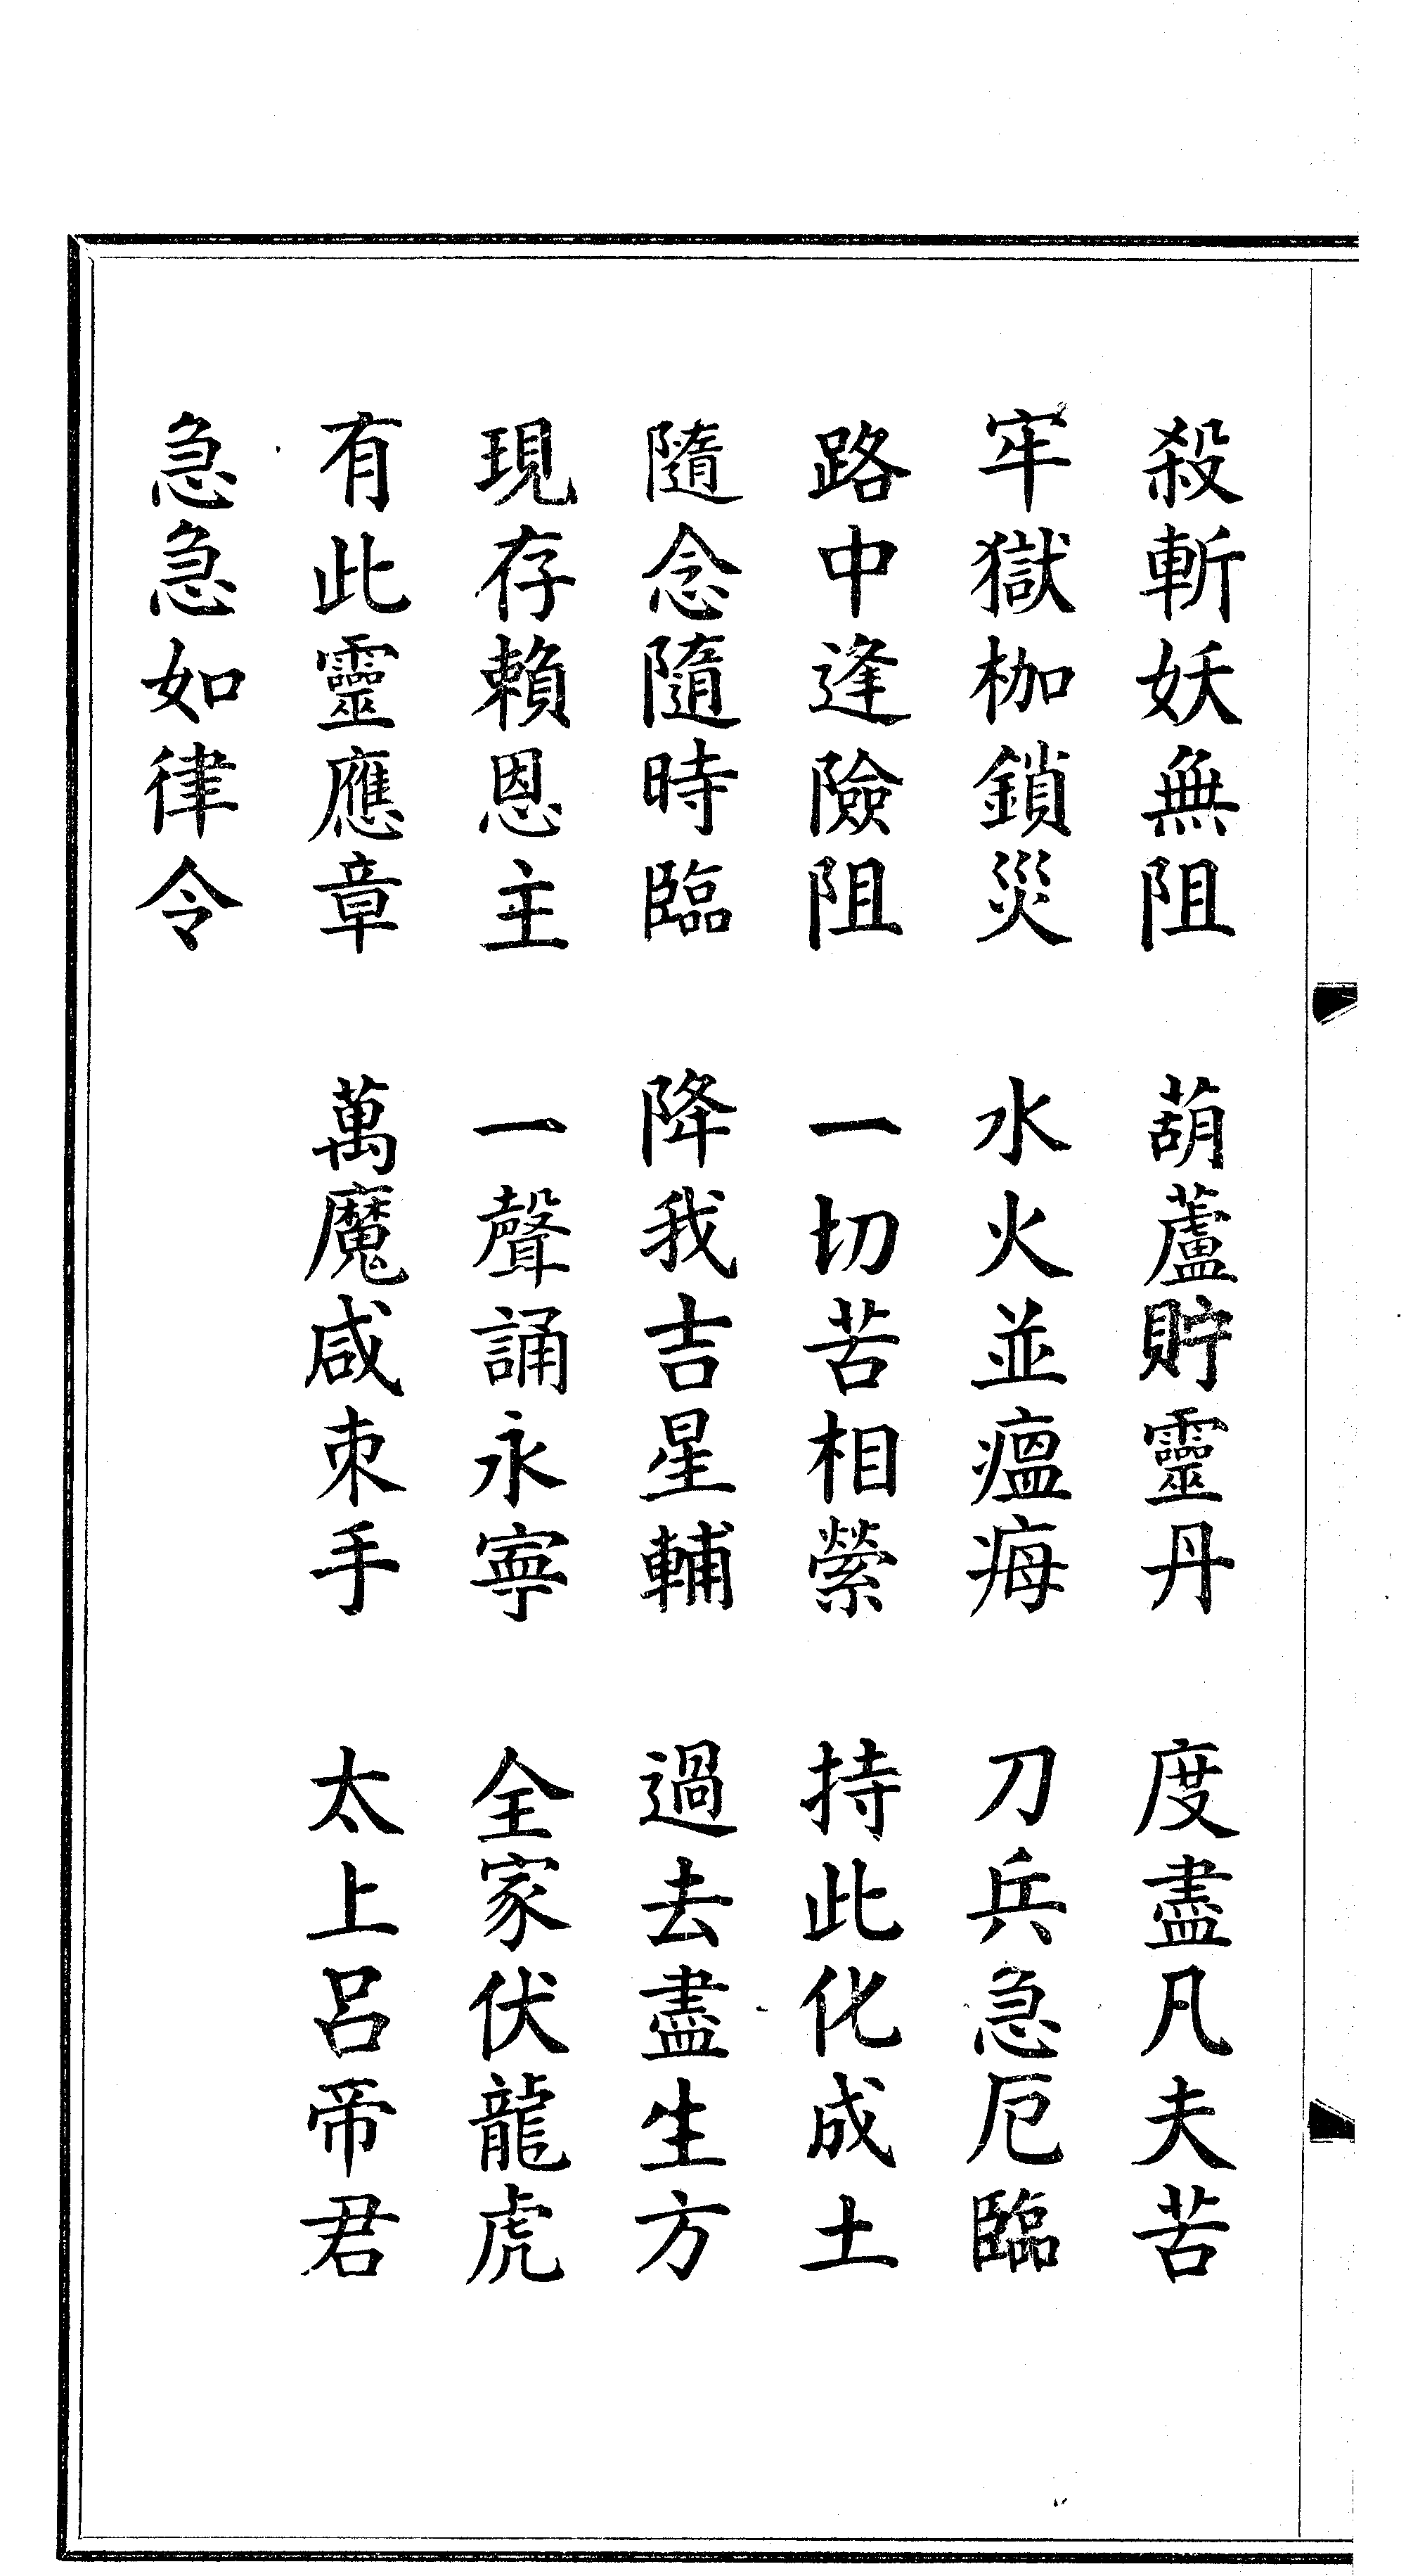 殺斬妖無阻　葫蘆貯靈丹　度盡凡夫苦
牢獄枷鎖災　水火並瘟㾂　刀兵急厄臨
路中逢險阻　一切苦相縈　持此化成土
隨念隨時臨　降我吉星輔　過去盡生方
現存賴恩主　一聲誦永寧　全家伏龍虎
有此靈應章　萬魔咸朿手　太上呂帝君
急急如律令